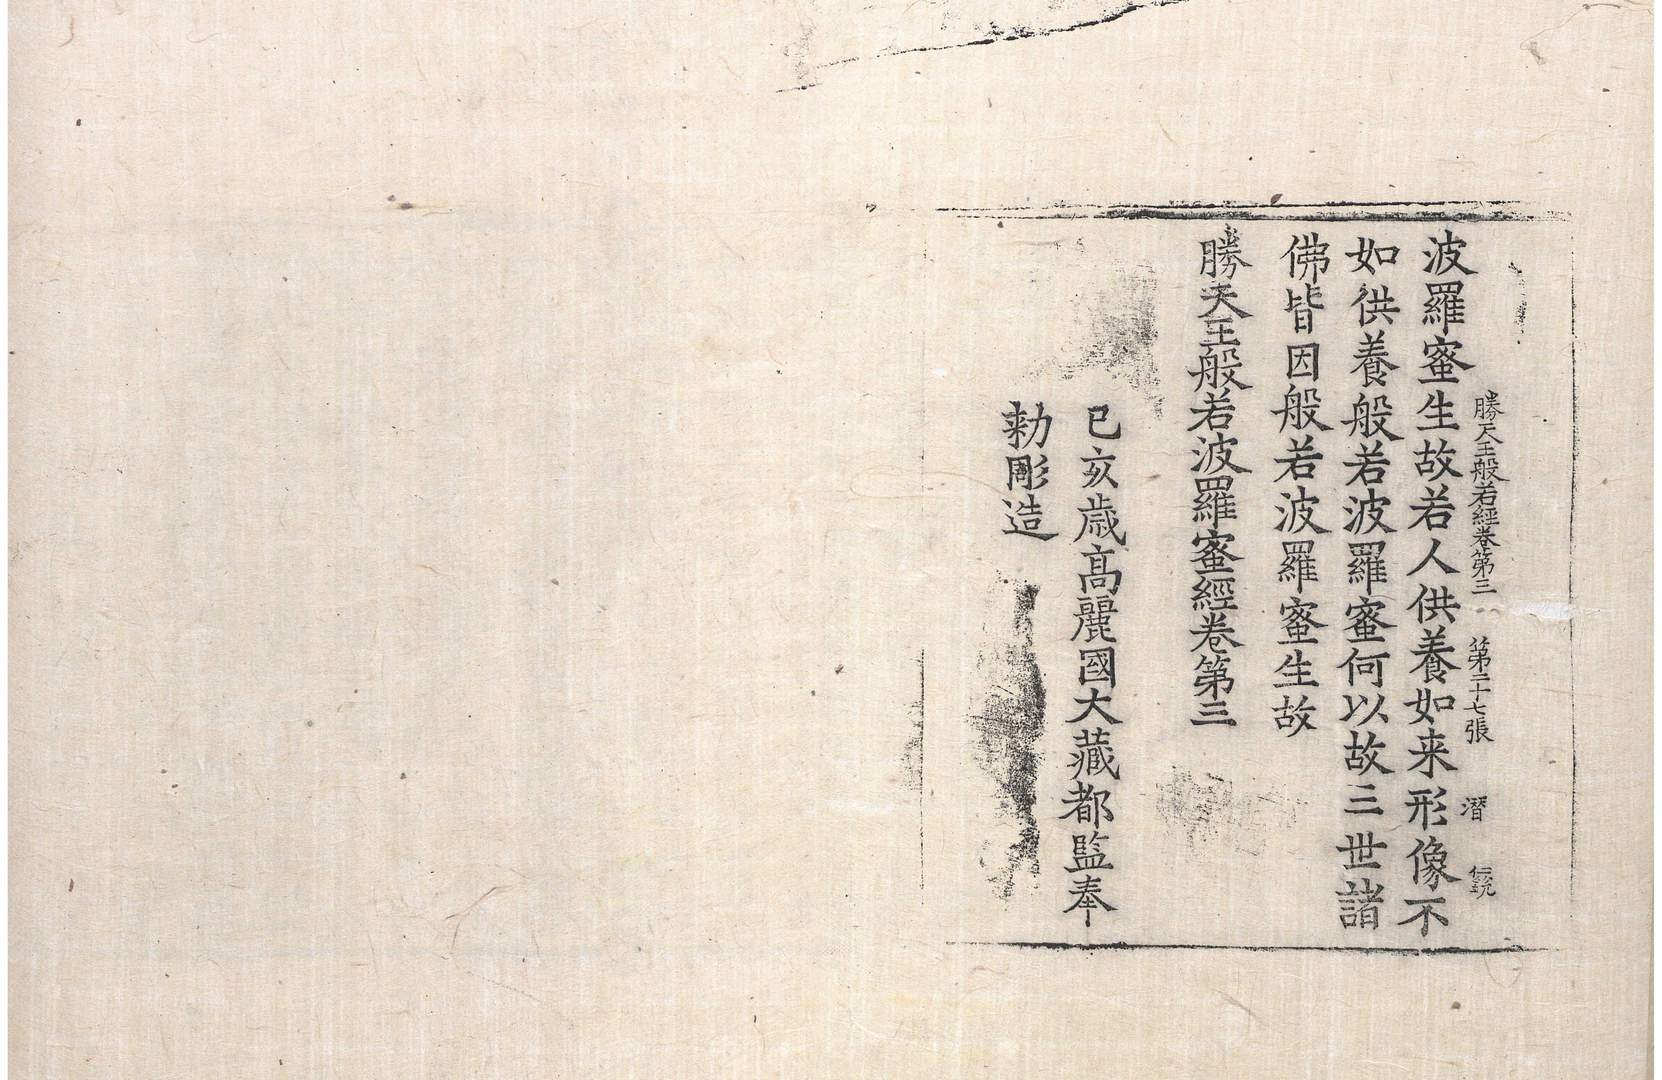 勝天王般若經卷第三 第二十七張 潜
波羅蜜生故若人供養如来形像不
如供養般若波羅蜜何以故三世諸
佛皆因般若波羅蜜生故
勝天王般若波羅蜜經卷第三
已亥歳髙麗國大藏都監奉
勑彫造